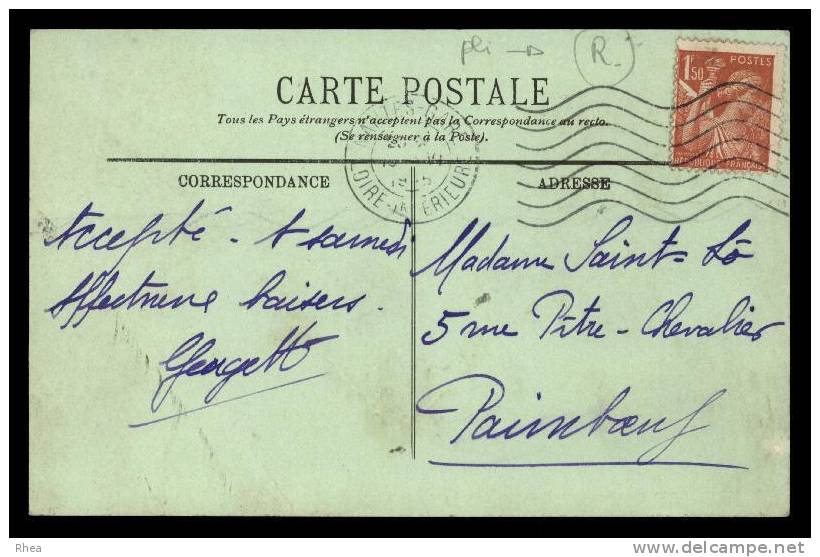 pli → R
1F50
POSTES
CARTE POSTALE
Tous les Pays étrangers n'acceptent pas la Correspondance au recto.
(Se renseigner à la Poste).
REPUBLIQUE FRANÇAISE
LOIRE-INFERIEURE
CORRESPONDANCE
ADRESSE
Accepté - A samedi
Affectueux baisers.
Georgette
Madame Saint-Lô
5 rue Pitre-Chevalier
Paimboeuf
Rhea
www.delcampe.net